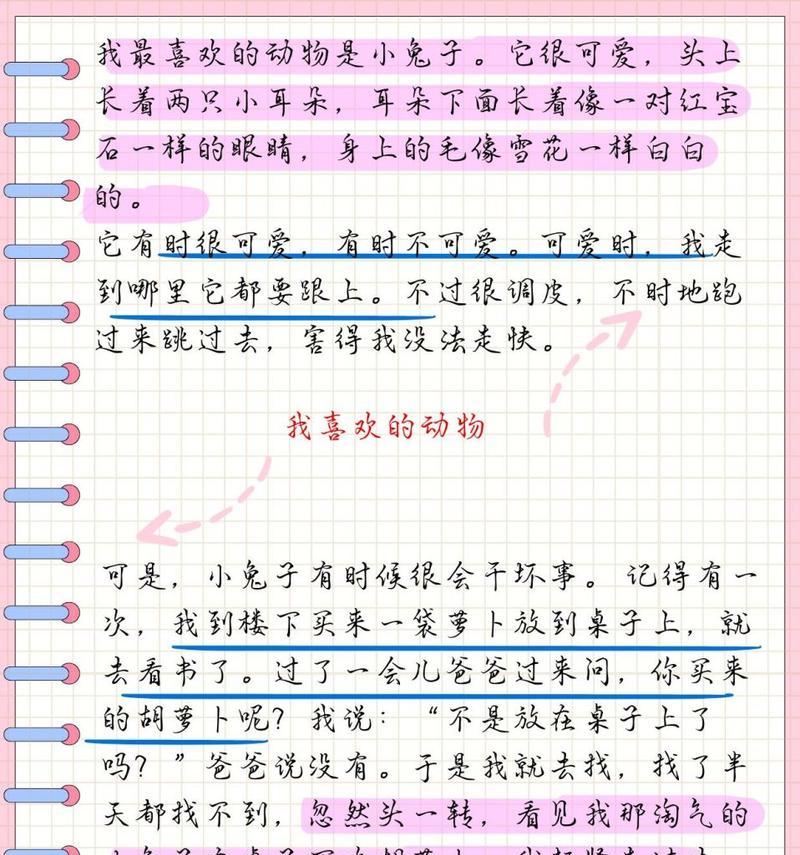 我最喜欢的动物是小兔子。它很可爱，头上
长着两只小耳朵，耳朵下面长着像一对红宝
石一样的眼睛，身上的毛像雪花一样白白
的。
它有时很可爱，有时不可爱。可爱时，我走
到哪里它都要跟上。不过很调皮，不时地跑
过来跳过去，害得我没法走快。
我喜欢的动物
可是，小兔子有时候很会干坏事。记得有一
次，我到楼下买来一袋萝卜放到桌子上，就
去看书了。过了一会儿爸爸过来问，你买来
的胡萝卜呢？我说：“不是放在桌子上了
吗？”爸爸说没有。于是我就去找，找了半
天都找不到，忽然头一转，看见我那淘气的